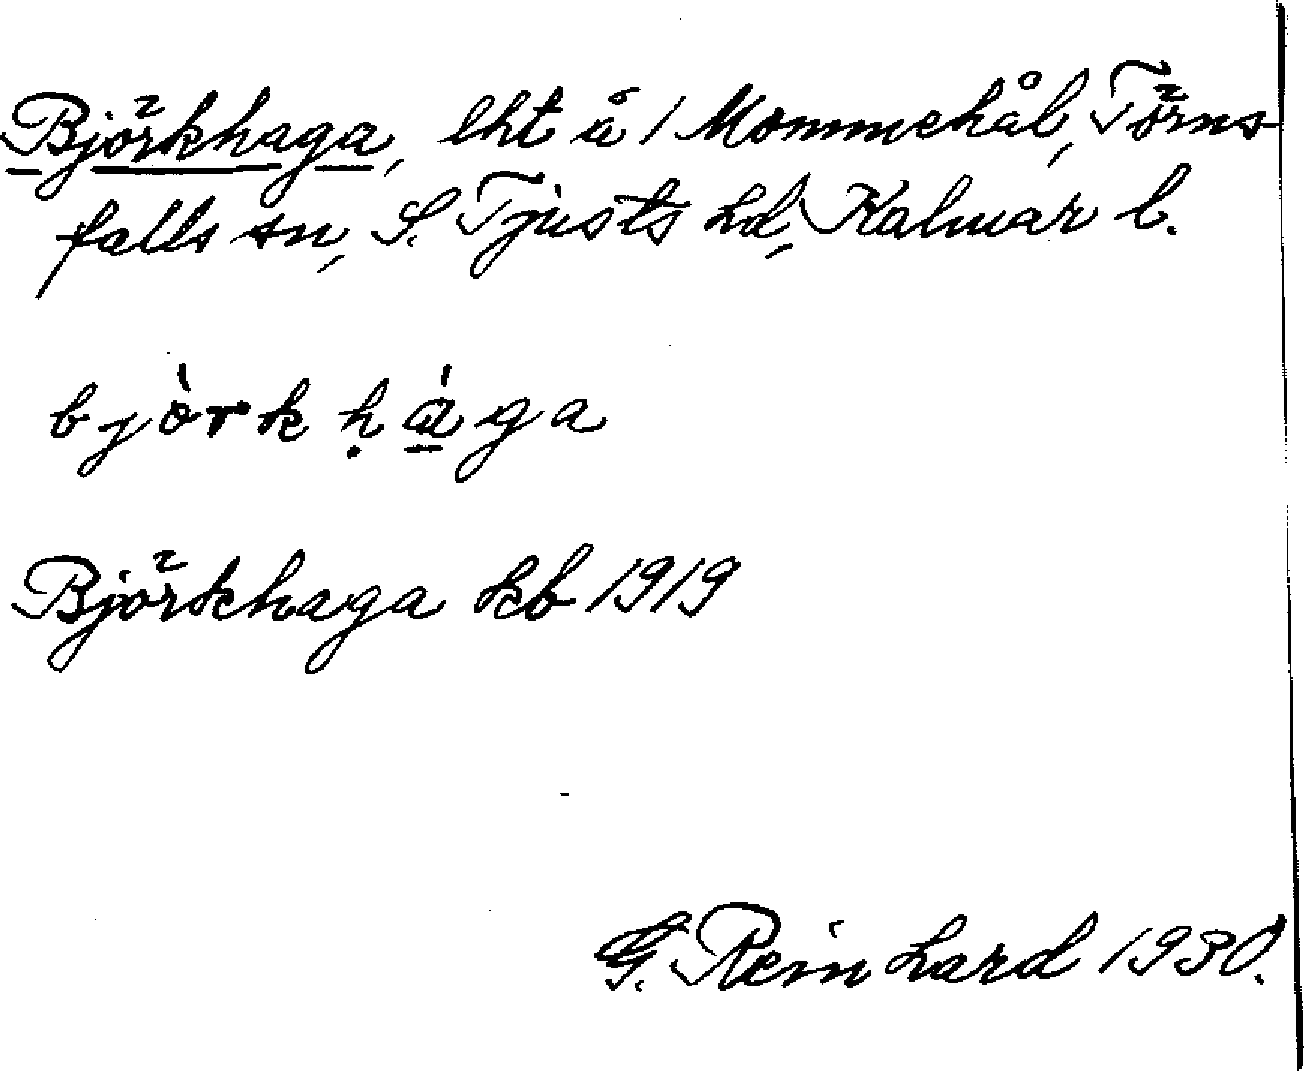 Björkhaga, lht å 1 Mommehål, Törns-
falls sn, S. Tjusts hd, Kalmar l.
bjòrkḥága
Björkhaga kb 1919
G. Reinhard 1930.